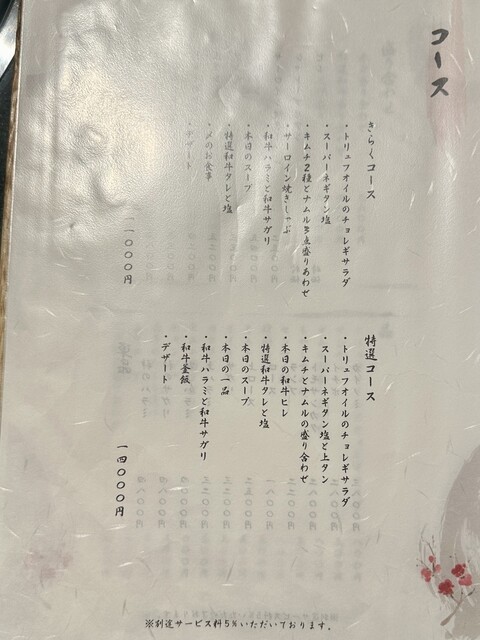 コース
きらくコース
・トリュフオイルのチョレギサラダ
・スーパーネギタン塩
・キムチ2種とナムル3点盛りあわせ
・サーロイン焼きしゃぶ
・和牛ハラミと和牛サガリ
・本日のスープ
・特選和牛タレと塩
・〆のお食事
・デザート
一一〇〇〇円
特選コース
・トリュフオイルのチョレギサラダ
・スーパーネギタン塩と上タン
・キムチとナムルの盛り合わせ
・本日の和牛ヒレ
・特選和牛タレと塩
・本日のスープ
・本日の一品
・和牛ハラミと和牛サガリ
・和牛釜飯
・デザート
一四〇〇〇円
※別途サービス料5%いただいております。